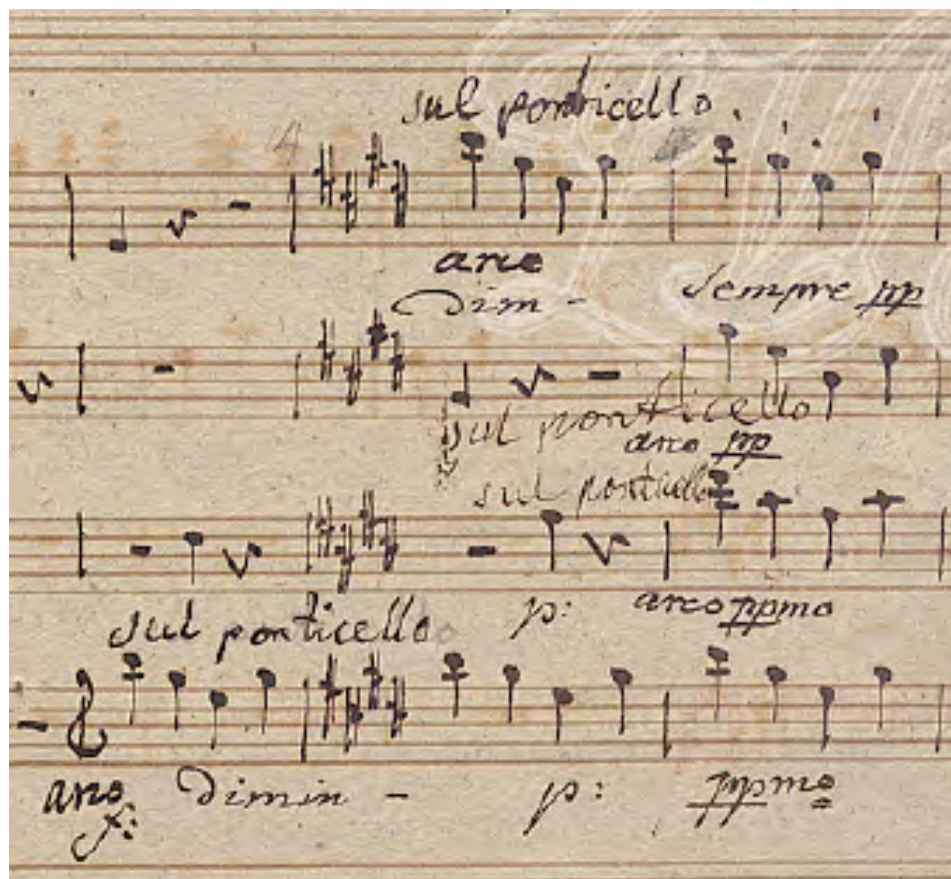 4
sul ponticello
arco
Dim - sempre pp
sul ponticello
arco pp
sul ponticello
p: arco ppmo
sul ponticello
arco Dimin - p: ppmo
f: